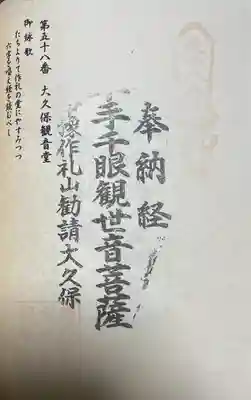 奉納経
千手千眼観世音菩薩
作礼山勧請大久保
第五十八番 大久保観音堂
御詠歌
たちよりて作礼の堂にやすみつつ
六字を唱え経を読むべし